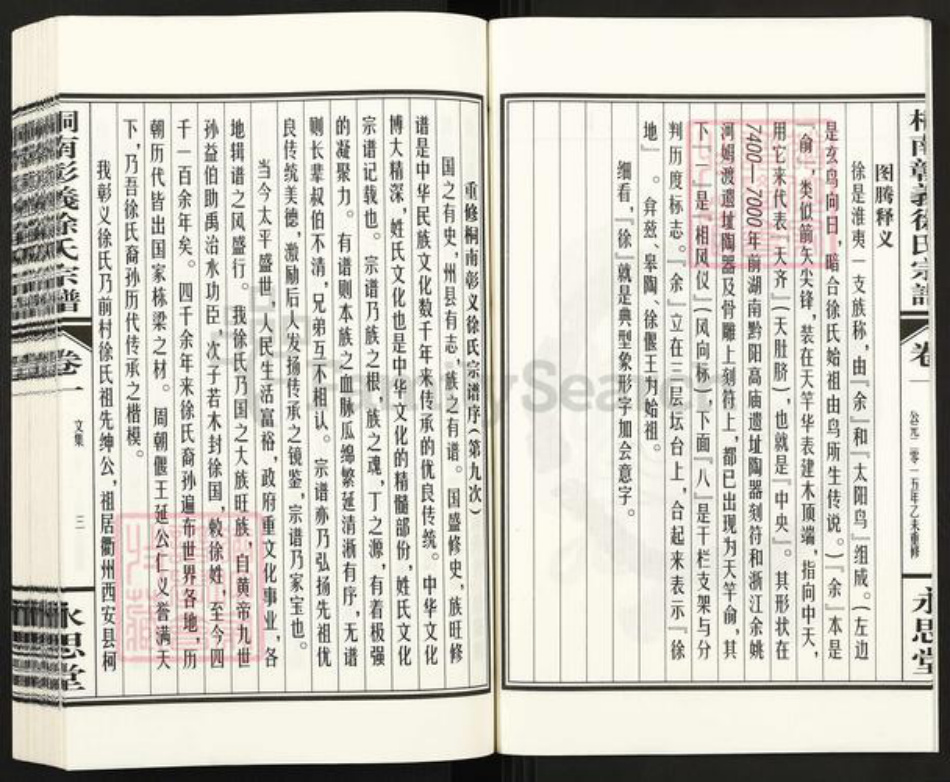 桐南彰義徐氏宗譜
卷一
公元二零一五年乙未重修
永思堂
图腾释义
徐是淮夷一支族称，由『余』和『太阳鸟』组成。（左边
是玄鸟向日，暗合徐氏始祖由鸟所生传说。）『余』本是
『俞』，类似箭矢尖锋，装在天竿华表建木顶端，指向中天，
用它来代表『天齐』（天肚脐），也就是『中央』。其形状在
7400—7000年前湖南黔阳高庙遗址陶器刻符和浙江余姚
河姆渡遗址陶器及骨雕上刻符上，都已出现为天竿俞，其
是『相风仪』（风向标），下面『八』是干栏支架与分
判历度标志。『余』立在三层坛台上，合起来表示『徐
地』。弇兹、皋陶、徐偃王为始祖。
细看，『徐』就是典型象形字加会意字。
重修桐南彰义徐氏宗谱序（第九次）
国之有史，州县有志，族之有谱。国盛修史，族旺修
谱是中华民族文化数千年来传承的优良传统。中华文化
博大精深，姓氏文化也是中华文化的精髓部份，姓氏文化
宗谱记载也。宗谱乃族之根，族之魂，丁之源，有着极强
的凝聚力。有谱则本族之血脉瓜绵繁延清淅有序，无谱
则长辈叔伯不清，兄弟互不相认。宗谱亦乃弘扬先祖优
良传统美德，激励后人发扬传承之镜鉴，宗谱乃家宝也。
当今太平盛世，人民生活富裕，政府重文化事业，各
地辑谱之风盛行。我徐氏乃国之大族旺族，自黄帝九世
孙益伯助禹治水功臣，次子若木封徐国，敕徐姓，至今四
千一百余年矣。四千余年来徐氏裔孙遍布世界各地，历
朝历代皆出国家栋梁之材。周朝偃王延公仁义誉满天
下，乃吾徐氏裔孙历代传承之楷模。
我彰义徐氏乃前村徐氏祖先绅公，祖居衢州西安县柯
桐南彰義徐氏宗譜
卷一
文集
三
永思堂
FamilySearch